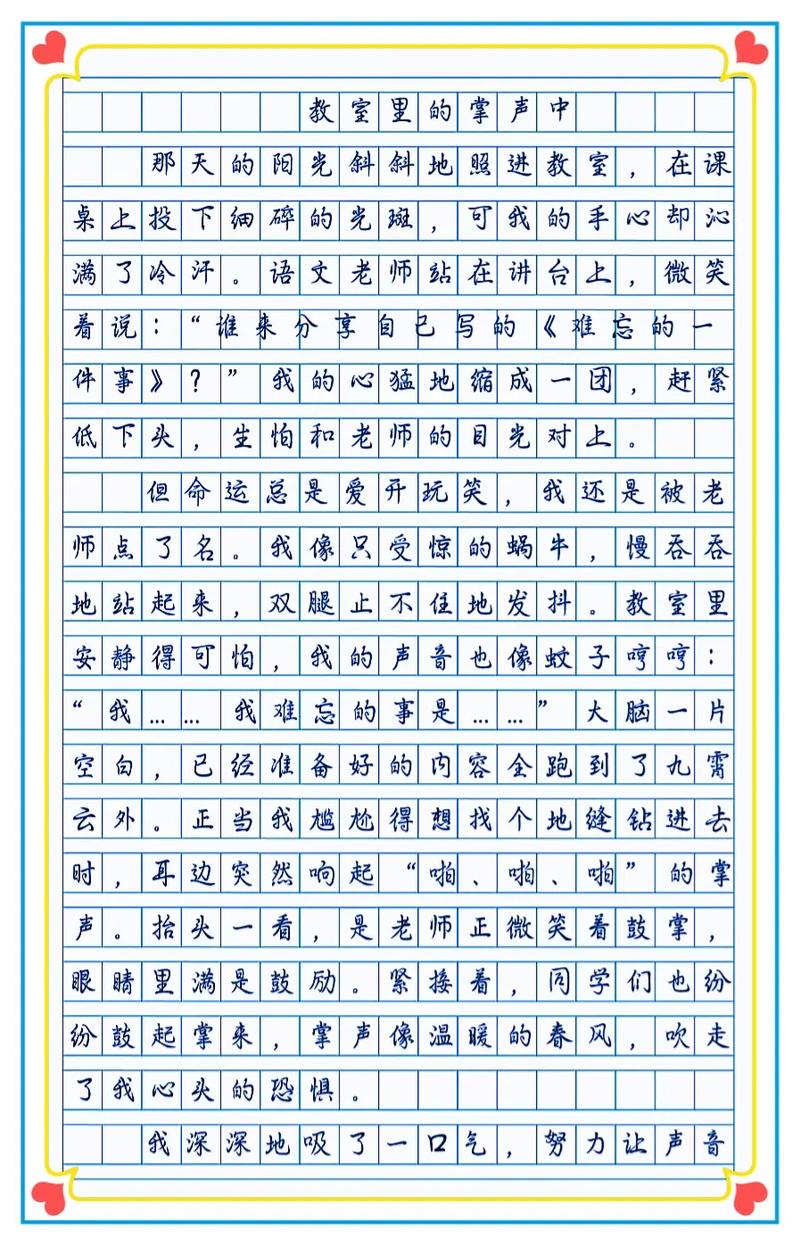 教室里的掌声中
那天的阳光斜斜地照进教室，在课
桌上投下细碎的光斑，可我的手心却沁
满了冷汗。语文老师站在讲台上，微笑
着说：“谁来分享自己写的《难忘的一
件事》？”我的心猛地缩成一团，赶紧
低下头，生怕和老师的目光对上。
但命运总是爱开玩笑，我还是被老
师点了名。我像只受惊的蜗牛，慢吞吞
地站起来，双腿止不住地发抖。教室里
安静得可怕，我的声音也像蚊子哼哼：
“我……我难忘的事是……”大脑一片
空白，已经准备好的内容全跑到了九霄
云外。正当我尴尬得想找个地缝钻进去
时，耳边突然响起“啪、啪、啪”的掌
声。抬头一看，是老师正微笑着鼓掌，
眼睛里满是鼓励。紧接着，同学们也纷
纷鼓起掌来，掌声像温暖的春风，吹走
了我心头的恐惧。
我深深地吸了一口气，努力让声音